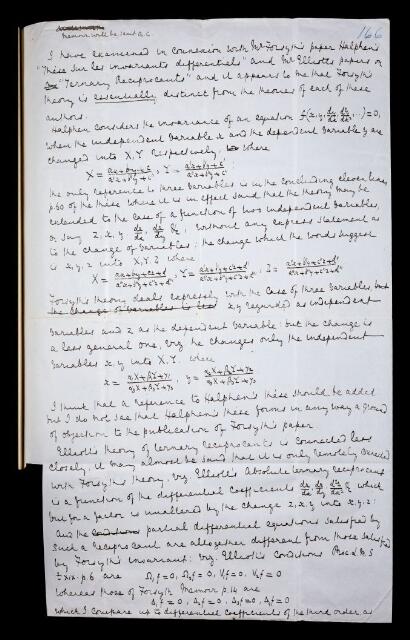 Memoir will be sent A.C.
166
I have examined in connexion with Mr Forsyth's paper Halphen's
"Thèse sur les invariants différentiels" and Mr Elliott's papers on
"Ternary Reciprocants" and it appears to me that Forsyth's
theory is essentially distinct from the theories of each of these
authors.
Halphen considers the invariance of an equation f(x, y, dy/dx, d²y/dx², ...) = 0,
when the independent variable x and the dependent variable y are
changed into X, Y respectively, where
X = (ax+by+c)/(a''x+b''y+c''), Y = (a'x+b'y+c')/(a''x+b''y+c'') :
the only reference to three variables is in the concluding eleven lines,
p. 60 of the thèse where it is in effect said that the theory may be
extended to the case of a function of two independent variables,
or say z, x, y, dz/dx, dz/dy &c, without any express statement as
to the change of variables: the change which the words suggest
is x, y, z into X, Y, Z where
Forsyth's theory deals expressly with the case of three variables, but
the change of variables is
x, y regarded as independent
variables and z as the dependent variable: but the change is
a less general one, viz. he changes only the independent
variables x, y into X, Y where
x = (α₁X+β₁Y+γ₁)/(α₃X+β₃Y+γ₃), y = (α₂X+β₂Y+γ₂)/(α₃X+β₃Y+γ₃)
I think that a reference to Halphen's thèse should be added
but I do not see that Halphen's thèse forms in any way a ground
of objection to the publication of Forsyth's paper.
Elliott's theory of ternary reciprocants is connected less
closely, it may almost be said that it is only remotely connected
with Forsyth's theory: viz. Elliott's Absolute ternary reciprocant
is a function of the differential coefficients dz/dx, dz/dy, d²z/dx² &c which
but for a factor is unaltered by the change z, x, y into x, y, z:
and the conditions partial differential equations satisfied by
such a reciprocant are altogether different from those satisfied
by Forsyth's invariant: viz. Elliott's conditions Proc. L.M.S
t. XIX. p. 6 are
Ω₁f = 0, Ω₂f = 0, V₁f = 0, V₂f = 0
whereas those of Forsyth Memoir p. 14 are
Δ₁f = 0, Δ₂f = 0, Δ₃f = 0, Δ₄f = 0
which I compare up to differential coefficients of the third order as